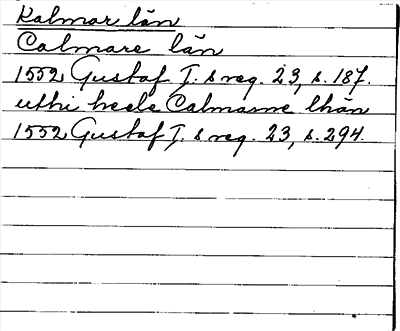 Kalmar län
Calmare län
1552 Gustaf I. s reg. 23, s. 187.
uthi heele Calmarne lhän
1552 Gustaf I. s reg. 23, s. 294.